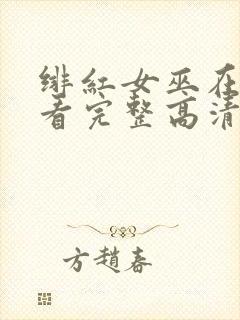 绯红女巫在
看完整高清
方趙春